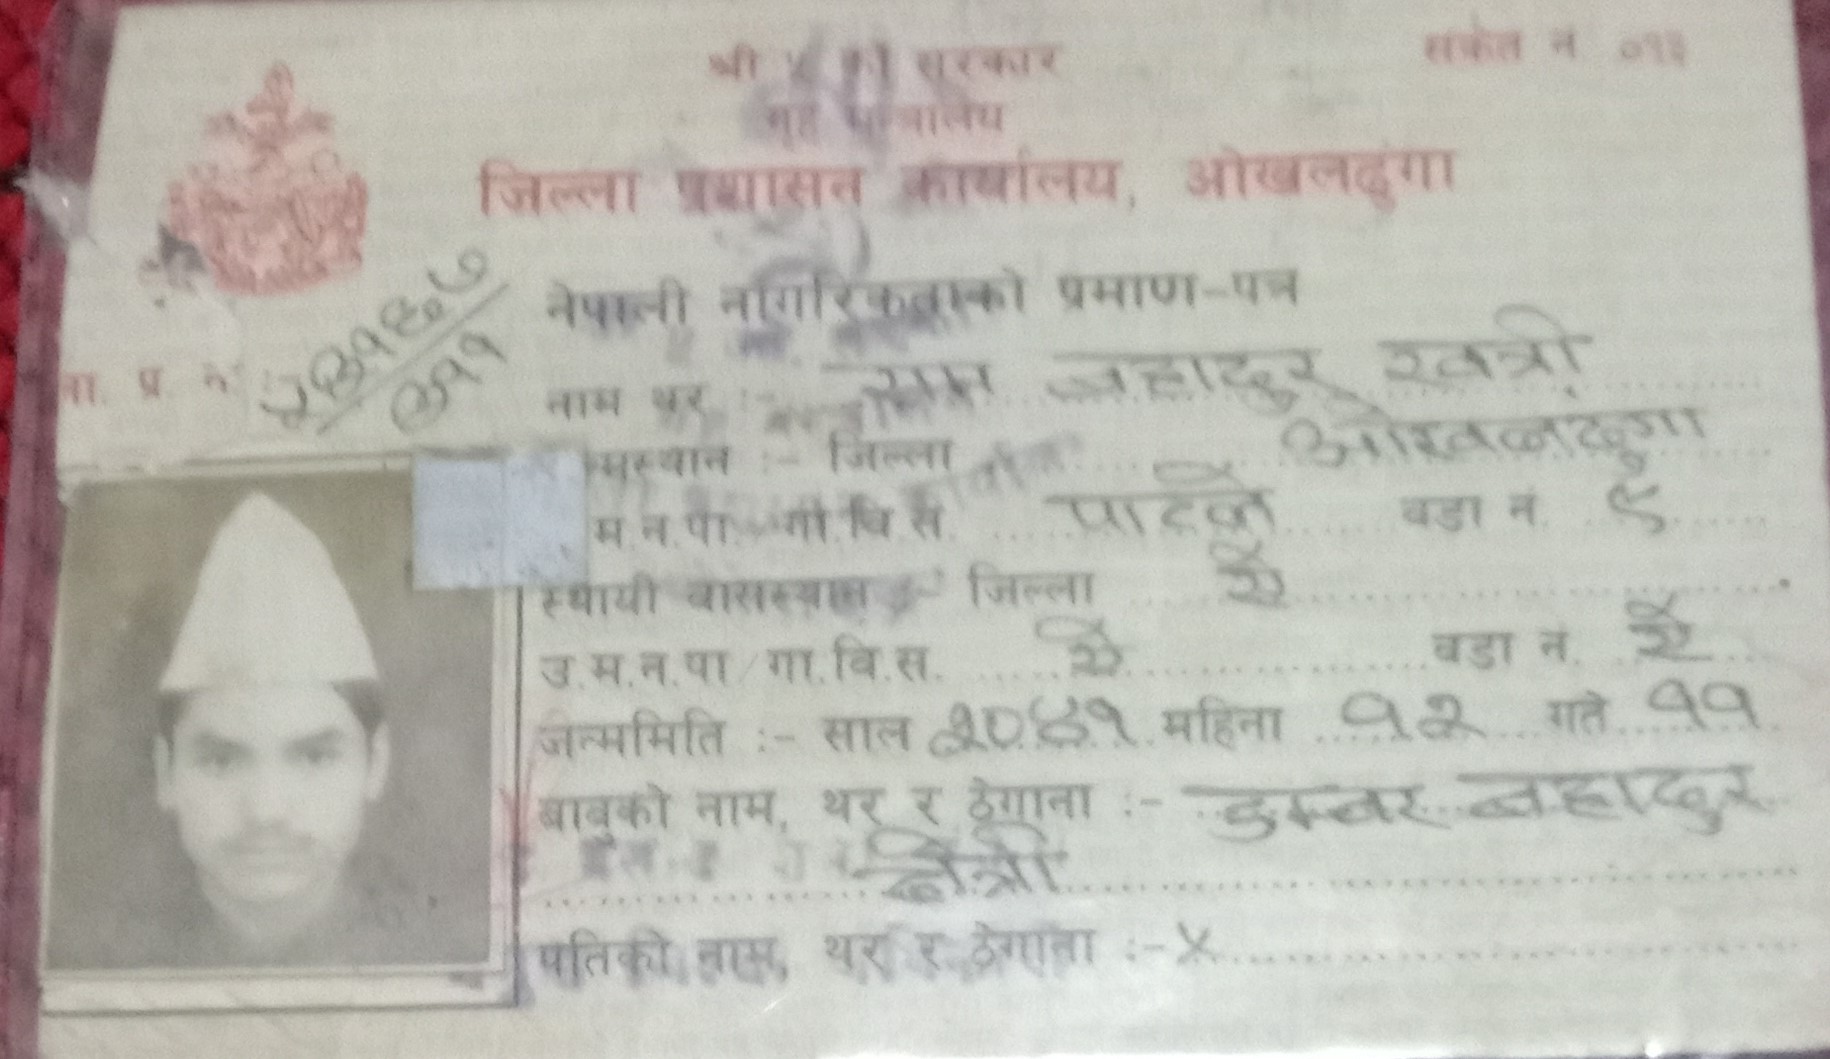 श्री ५ को सरकार
संकेत नं ०१३
गृह मन्त्रालय
जिल्ला प्रशासन कार्यालय, ओखलढुंगा
नेपाली नागरिकताको प्रमाण-पत्र
ना. प्र. नं.
नाम थर :- राम बहादुर खत्री
जन्मस्थान :- जिल्ला ओखलढुंगा
म.न.पा. गा.वि.स. पाटले वडा नं. ९
स्थायी वासस्थान :- जिल्ला ऐ
उ.म.न.पा/गा.वि.स. ऐ वडा नं. ऐ
जन्ममिति :- साल २०४१ महिना १२ गते ११
बाबुको नाम, थर र ठेगाना :- डम्बर बहादुर
क्षेत्री
पतिको नाम, थर र ठेगाना :- x